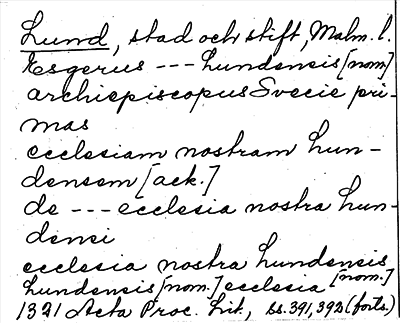 Lund, stad och stift, Malm. l.
Esgerus --- Lundensis [nom.]
archiepiscopus Svecie pri-
mas
ecclesiam nostram Lun-
densem [ack.]
de --- ecclesia nostra Lun-
densi
ecclesia nostra Lundensis [nom.]
Lundensis [nom.] ecclesia
1321 Acta Proc. Lit, ss. 391, 392 (forts.)